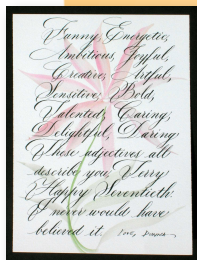 Funny, Energetic,
Ambitious, Joyful,
Creative, Artful,
Sensitive, Bold,
Talented, Caring,
Delightful, Daring:
These adjectives all
describe you, Terry
Happy Seventieth!
I never would have
believed it. Love,